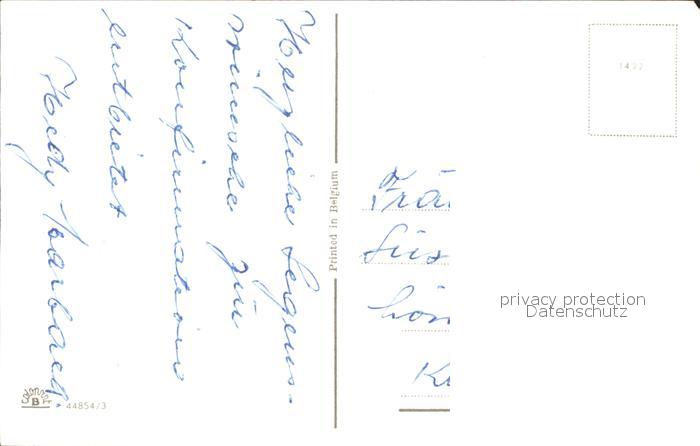 Herzliche Segens-
wünsche zur
Konfirmation
entbietet
Hedy
Printed in Belgium
1422
Frä
Sus
Lön
K
privacy protection
Datenschutz
Colorprint
B
44854/3